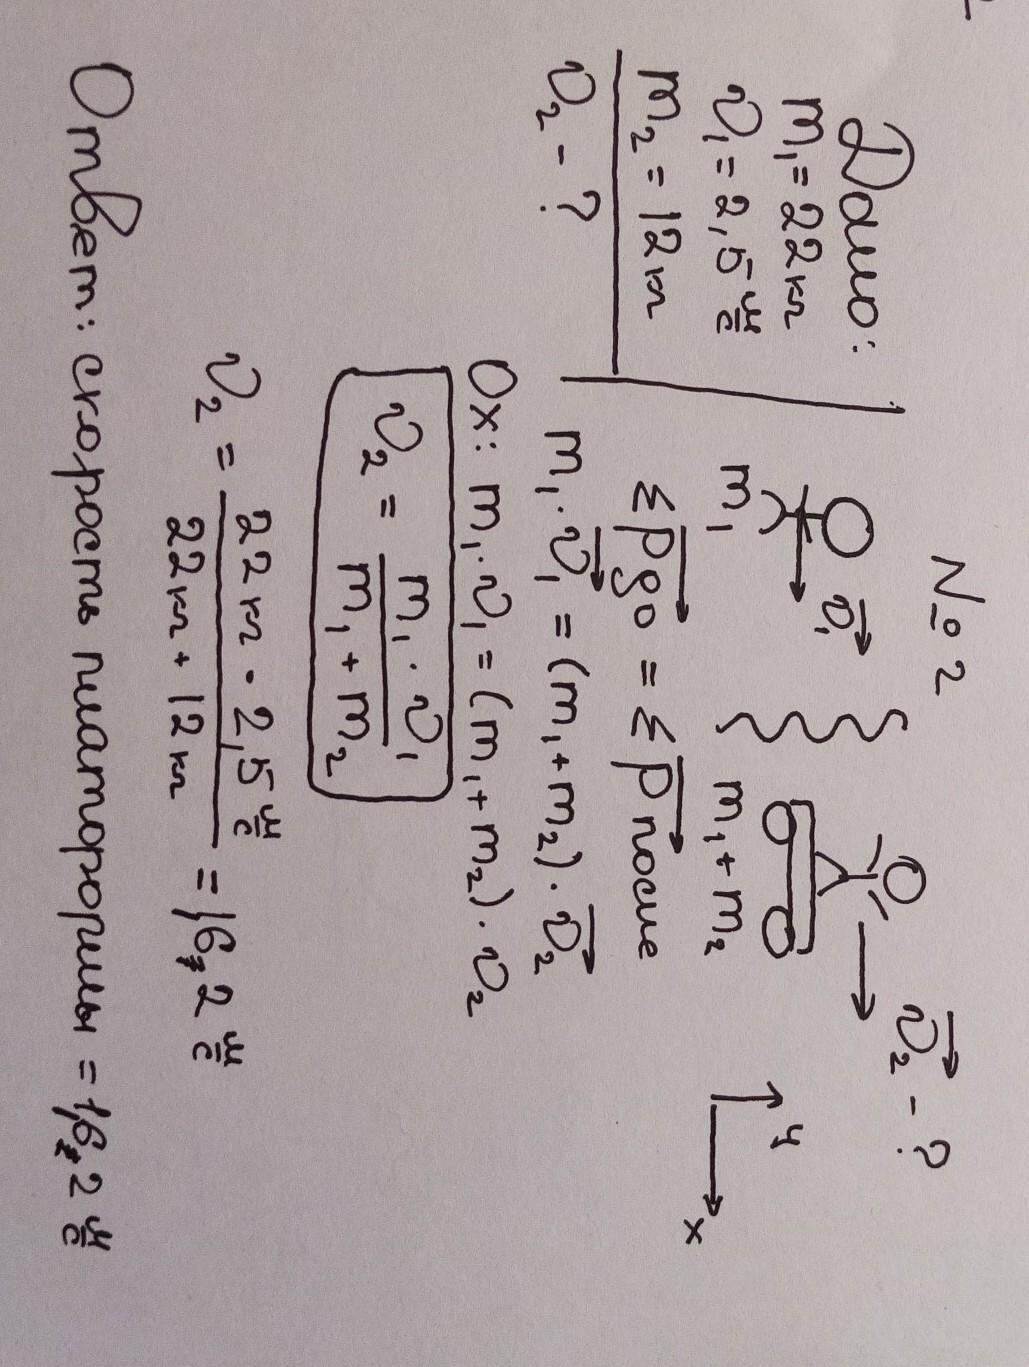 № 2
Дано:
m₁ = 22 кг
v₁ = 2,5 м/с
m₂ = 12 кг
v₂ - ?
v₁
m₁
m₁ + m₂
v₂ - ?
y
x
Σp до = Σp после
m₁ · v₁ = (m₁ + m₂) · v₂
Ox: m₁ · v₁ = (m₁ + m₂) · v₂
v₂ = m₁ · v₁ / m₁ + m₂
v₂ = 22 кг · 2,5 м/с / 22 кг + 12 кг = 1,62 м/с
Ответ: скорость платформы = 1,62 м/с